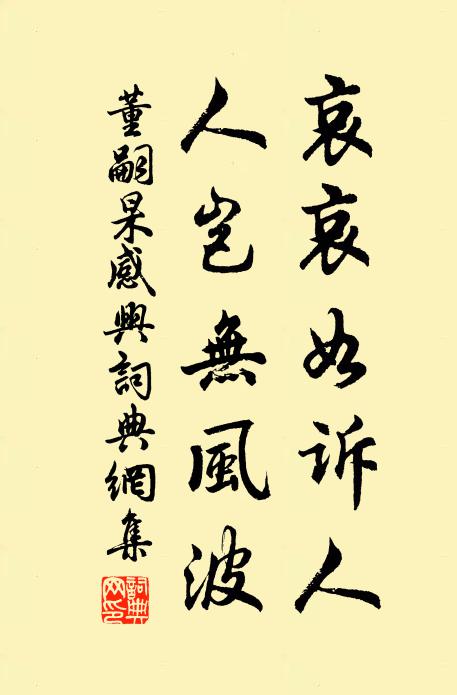 哀哀如訴人
人豈無風波
董嗣杲感興詞典網集